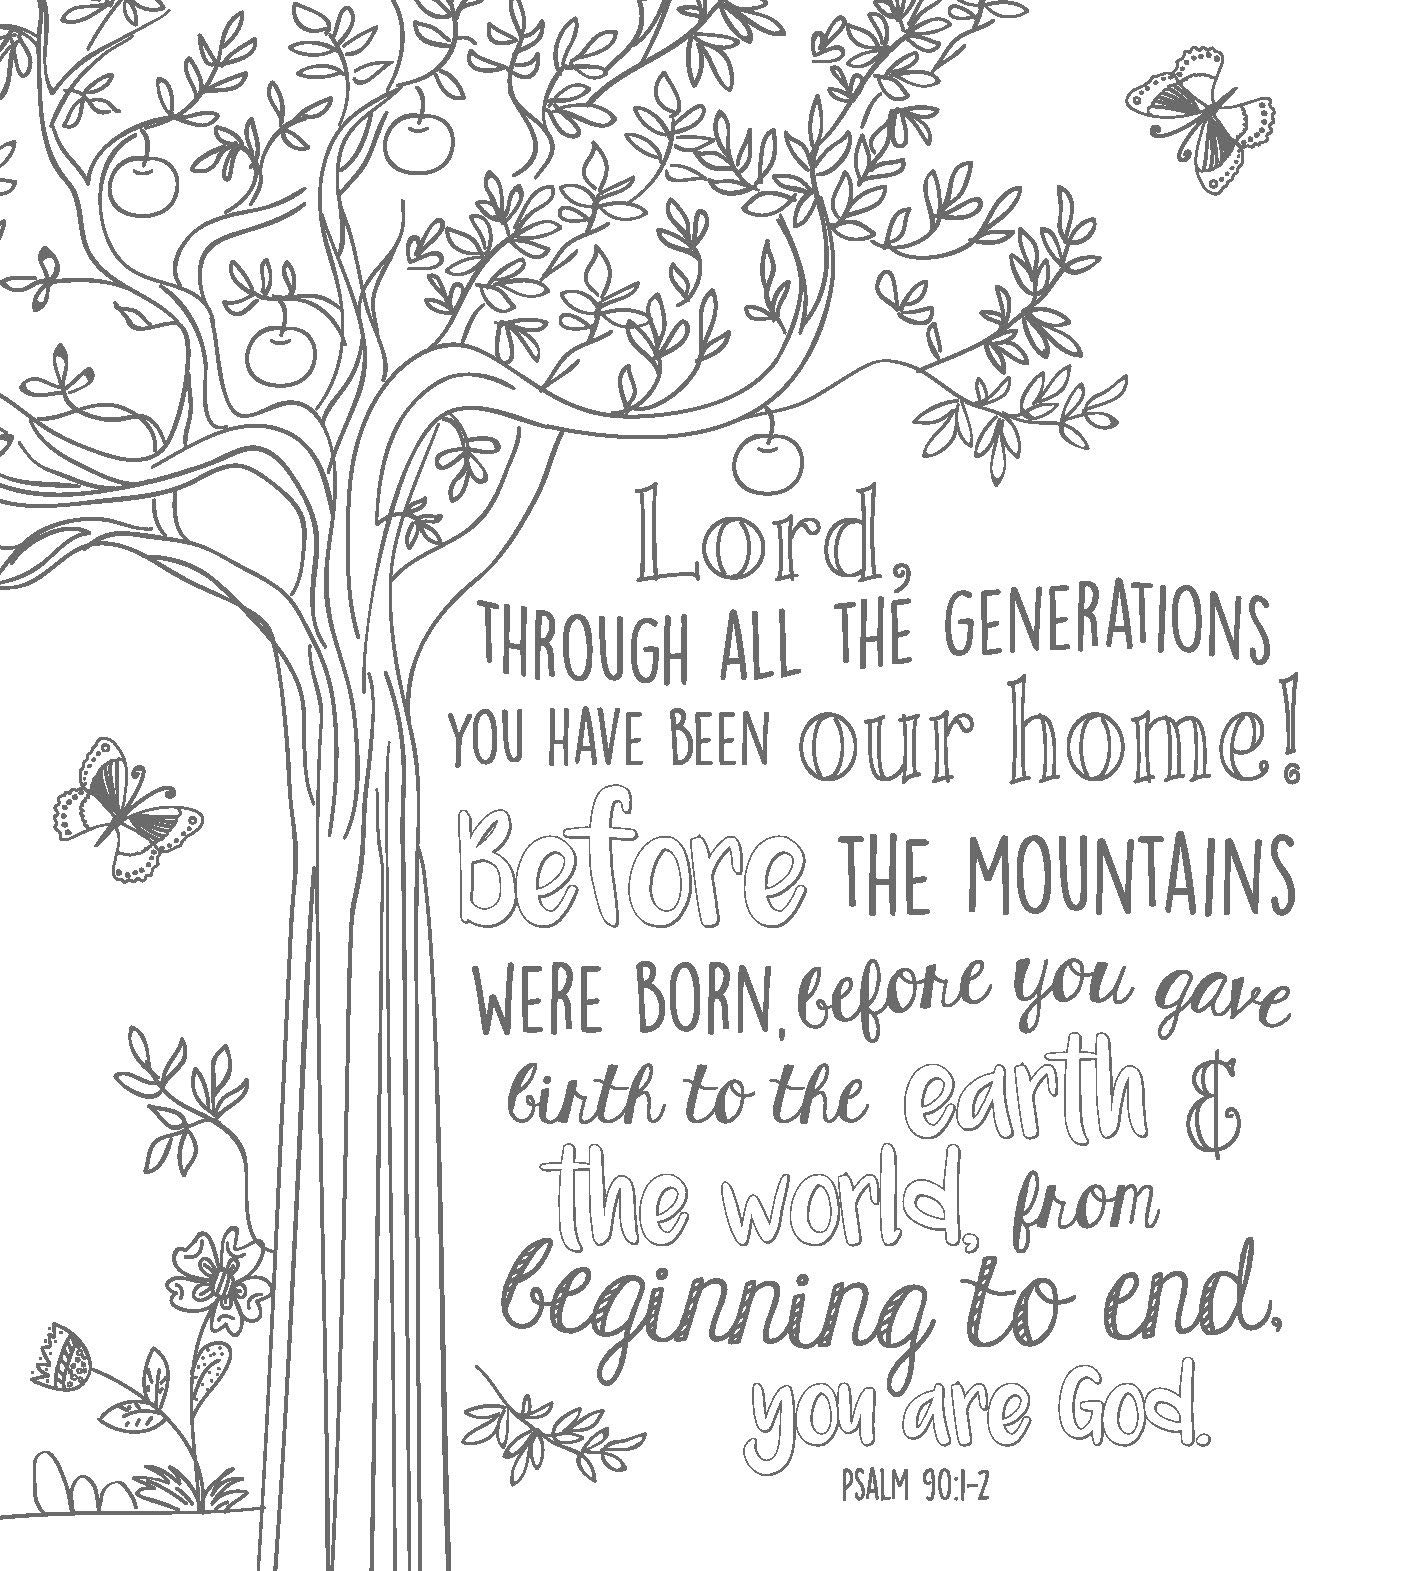 Lord,
THROUGH ALL THE GENERATIONS
YOU HAVE BEEN our home!
Before THE MOUNTAINS
WERE BORN, before you gave
birth to the earth &
the world, from
beginning to end,
you are God.
PSALM 90:1-2